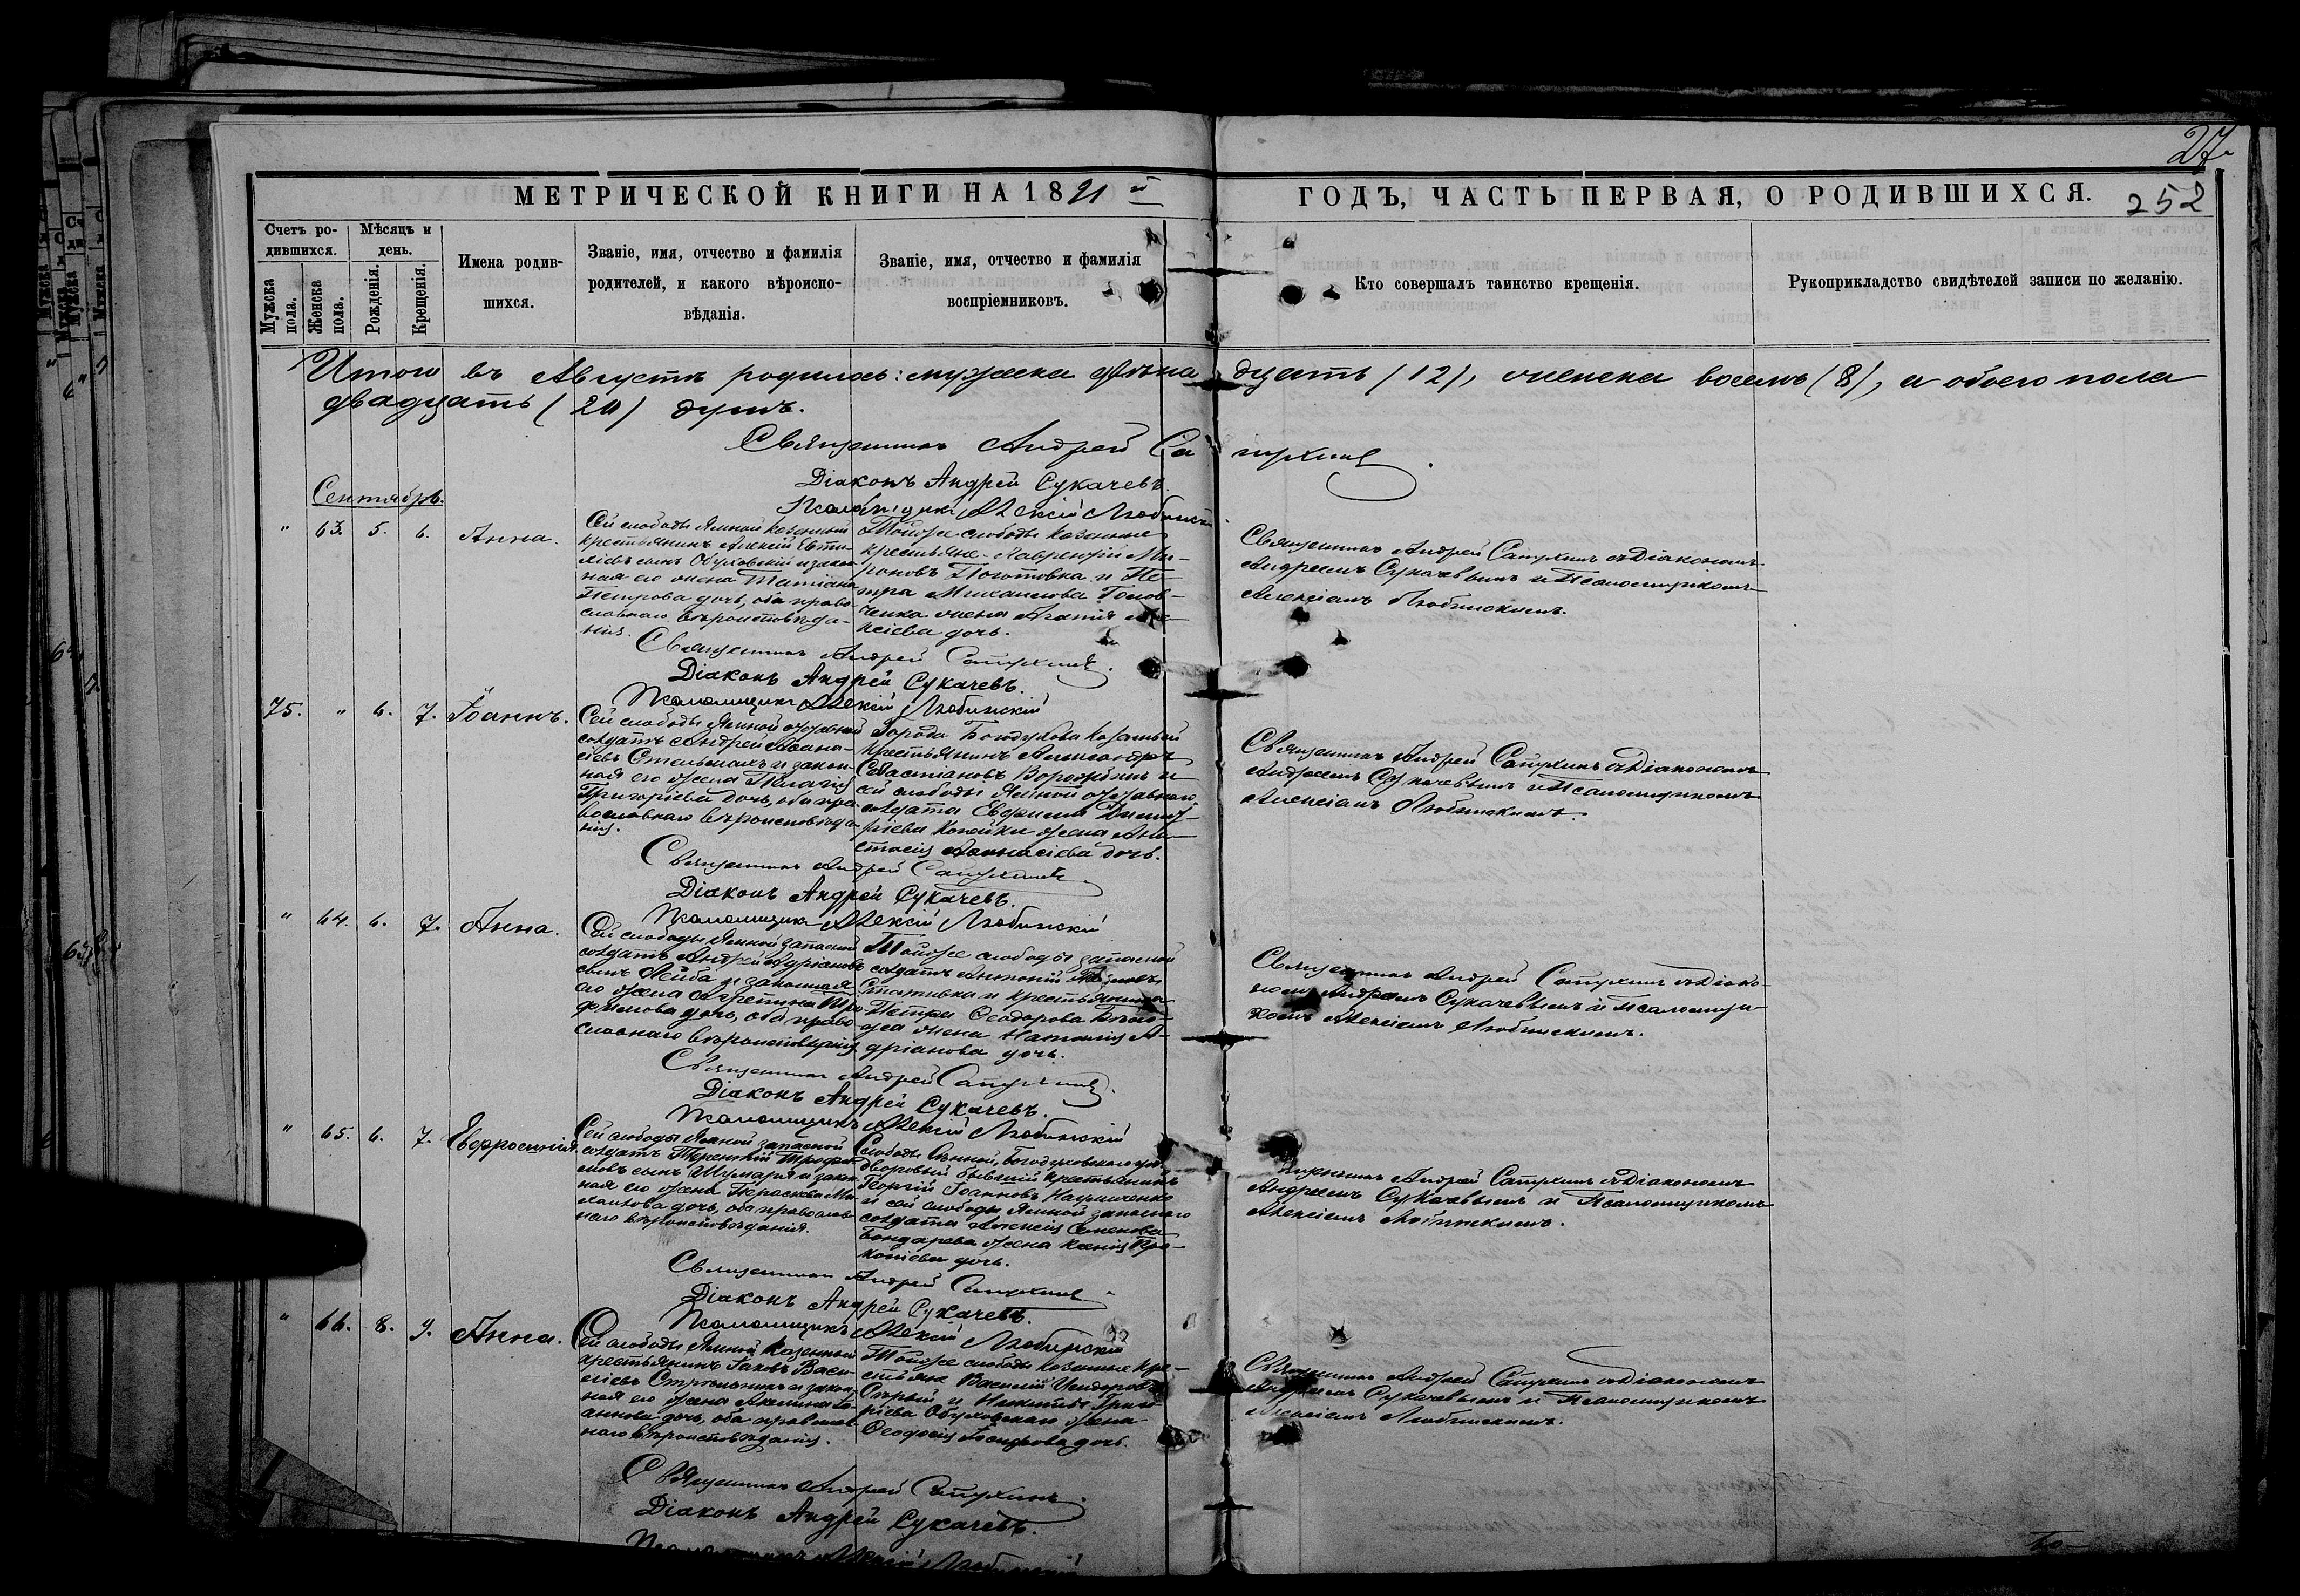 27.
252
МЕТРИЧЕСКОЙ КНИГИ НА 1891 й ГОДЪ, ЧАСТЬ ПЕРВАЯ, О РОДИВШИХСЯ.
Счетъ ро-
дившихся.
Мужска пола.
Женска пола.
Мѣсяцъ и
день.
Рожденія.
Крещенія.
Имена родив-
шихся.
Званіе, имя, отчество и фамилія
родителей, и какого вѣроиспо-
вѣданія.
Званіе, имя, отчество и фамилія
воспріемниковъ.
Кто совершалъ таинство крещенія.
Рукоприкладство свидѣтелей записи по желанію.
Итого въ Августѣ родилось: мужска двѣнадцать (12), женска восемь (8), а обоего пола
двадцать (20) душъ.
Священникъ Андрей
Діаконъ Андрей Сукачевъ.
Псаломщикъ Алексій Любинскій
Сентябрь.
" 63. 5. 6. Анна.
Сей слободы Ямной казенный
крестьянинъ Алексій
сынъ Обуховскій и закон-
ная его жена Татіана
Петрова дочь, оба право-
славнаго вѣроисповѣда-
нія.
Тойже слободы казенные
крестьяне Лаврентій Ми-
роновъ и Пе-
тра Михаилова Голов-
ченка жена Агапія Але-
ксіева дочь.
Священникъ Андрей Сапухинъ съ Діакономъ
Андреемъ Сукачевымъ и Псаломщикомъ
Алексіемъ Любинскимъ.
Священникъ Андрей Сапухинъ.
Діаконъ Андрей Сукачевъ.
Псаломщикъ Алексій Любинскій
75. " 6. 7. Іоаннъ.
Сей слободы Ямной отставной
солдатъ Андрей Аѳана-
сіевъ Стельмахъ и закон-
ная его жена Пелагія
Григоріева дочь, оба пра-
вославнаго вѣроисповѣда-
нія.
Города Богодухова казенный
крестьянинъ Александръ
Севастіановъ и
сей слободы Ямной отставного
солдата Евфимія Димит-
ріева Копейки жена Ана-
стасія Аѳанасіева дочь.
Священникъ Андрей Сапухинъ съ Діакономъ
Андреемъ Сукачевымъ и Псаломщикомъ
Алексіемъ Любинскимъ.
Священникъ Андрей Сапухинъ
Діаконъ Андрей Сукачевъ.
Псаломщикъ Алексій Любинскій
" 64. 6. 7. Анна.
Сей слободы Ямной запасной
солдатъ Андрей Адріановъ
сынъ и законная
его жена Агрепина Тро-
фимова дочь, оба право-
славнаго вѣроисповѣданія
Тойже слободы запасной
солдатъ Антоній
и крестьянина
Петра Ѳеодорова
жена Наталія А-
дріанова дочь.
Священникъ Андрей Сапухинъ съ Діако-
номъ Андреемъ Сукачевымъ и Псаломщи-
комъ Алексіемъ Любинскимъ.
Священникъ Андрей Сапухинъ.
Діаконъ Андрей Сукачевъ.
Псаломщикъ Алексій Любинскій
" 65. 6. 7. Евфросинія.
Сей слободы Ямной запасной
солдатъ Терентій Трофи-
мовъ сынъ и закон-
ная его жена Параскева Ми-
хаилова дочь, оба православ-
наго вѣроисповѣданія.
Слободы Сѣнной, Богодуховскаго уѣз.
дворовый бывшій крестьянинъ
Георгій Іоанновъ Науменко
и сей слободы Ямной запасного
солдата Алексія Семенова
Бондарева жена Ксенія Про-
копіева дочь.
Священникъ Андрей Сапухинъ съ Діакономъ
Андреемъ Сукачевымъ и Псаломщикомъ
Алексіемъ Любинскимъ.
Священникъ Андрей Сапухинъ
Діаконъ Андрей Сукачевъ.
Псаломщикъ Алексій Любинскій
" 66. 8. 9. Анна.
Сей слободы Ямной казенный
крестьянинъ Іаковъ Васи-
ліевъ и закон-
ная его жена Акилина Іо-
аннова дочь, оба православ-
наго вѣроисповѣданія.
Тойже слободы казенные кре-
стьяне Василій Исидоровъ
Сѣрый и Никиты Григо-
ріева Обуховскаго жена
Ѳеодосія Іосифова дочь.
Священникъ Андрей Сапухинъ съ Діакономъ
Андреемъ Сукачевымъ и Псаломщикомъ
Алексіемъ Любинскимъ.
Священникъ Андрей Сапухинъ.
Діаконъ Андрей Сукачевъ.
Псаломщикъ Алексій Любинскій